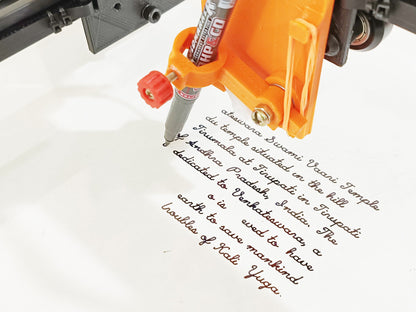 ateswara Swami Vaari Temple
du temple situated in the hill
Tirumala at Tirupati in Tirupati
of Andhra Pradesh, India. The
dedicated to Venkateswara, a
o is eved to have
earth to save mankind
troubles of Kali Yuga.